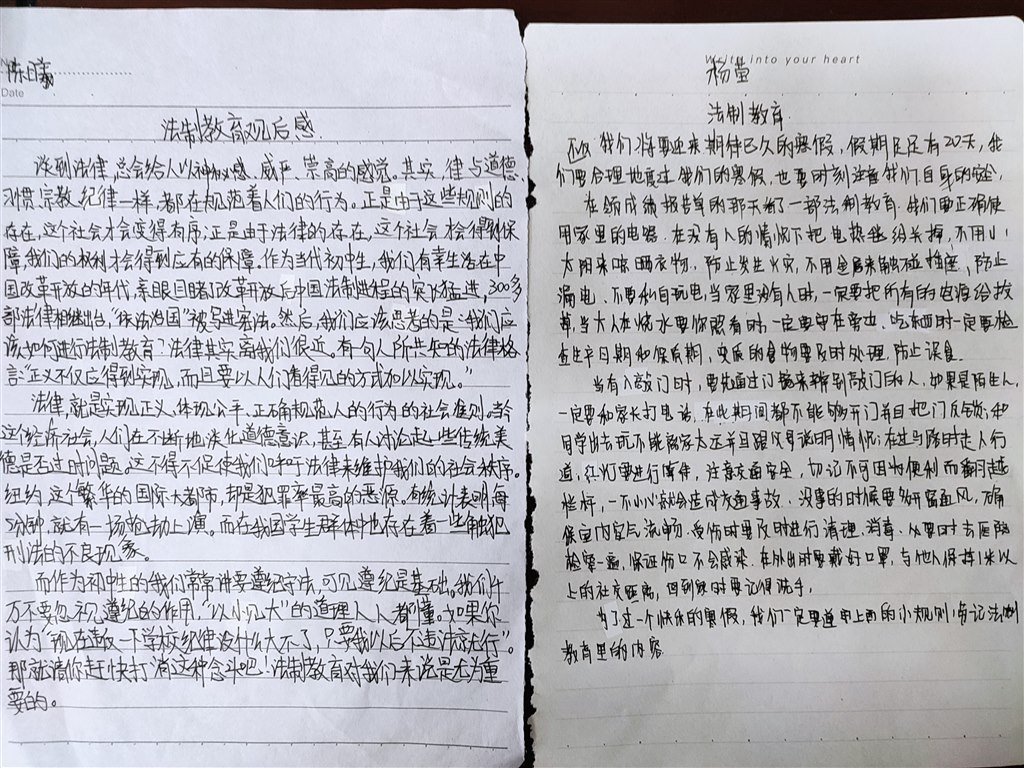 陈曦
Date
法制教育观后感
谈到法律,总会给人以神秘感、威严、崇高的感觉。其实,律与道德、
习惯、宗教、纪律一样,都在规范着人们的行为。正是由于这些规则的
存在,这个社会才会变得有序;正是由于法律的存在,这个社会才会得到保
障,我们的权利才会得到应有的保障。作为当代初中生,我们有幸生活在中
国改革开放的年代,亲眼目睹了改革开放后中国法制进程的突飞猛进,300多
部法律相继出台,“依法治国”被写进宪法。然后,我们应该思考的是:我们应
该如何进行法制教育?法律其实离我们很近。有一句人所共知的法律格
言:“正义不仅应得到实现,而且要以人们看得见的方式加以实现。”
法律,就是实现正义、体现公平、正确规范人的行为的社会准则。当今
这个经济社会,人们在不断地淡化道德意识,甚至有人讨论起一些传统美
德是否过时问题。这不得不促使我们呼吁法律来维护我们的社会秩序。
纽约,这个繁华的国际大都市,却是犯罪率最高的恶源。有统计表明,每
5分钟,就有一场抢劫上演。而在我国学生群体中也存在着一些触犯
刑法的不良现象。
而作为初中生的我们常常讲要遵纪守法,可见遵纪是基础。我们千
万不要忽视遵纪的作用,“以小见大”的道理人人都懂。如果你
认为“现在违反一下学校纪律没什么大不了,只要我以后不违法就行”。
那就请你赶快打消这种念头吧!法制教育对我们来说是尤为重
要的。
Write into your heart
杨莹
法制教育
我们将要迎来期待已久的寒假,假期足足有20天,我
们要合理地度过我们的寒假,也要时刻注意我们自身的安全。
在领成绩报告单的那天看了一部法制教育。我们要正确使
用家里的电器。在没有人的情况下把电热毯给关掉,不用小
太阳来晾晒衣物,防止发生火灾,不用金属来触碰插座,防止
漏电、不要私自玩电,当家里没有人时,一定要把所有的电源给拔
掉,当大人在烧水要你照看时,一定要守在旁边,吃东西时一定要检
查生产日期和保质期,变质的食物要及时处理,防止误食。
当有人敲门时,要先通过门镜来辨别敲门的人,如果是陌生人,
一定要和家长打电话,在此期间都不能够开门并且把门反锁;和
同学出去玩不能离家太远并且跟父母说明情况;在过马路时走人行
道,红灯要进行等待,注意交通安全,切记不可因为便利而翻越
栏杆,一不小心就会造成交通事故。没事的时候要多开窗通风,确
保室内空气流畅。受伤时要及时进行清理、消毒、必要时去医院
检察一遍,保证伤口不会感染。在外出时要戴好口罩,与他人保持1米以
上的社交距离,回到家时要记得洗手。
为了过一个快乐的寒假,我们一定要遵守上面的小规则,牢记法制
教育里的内容